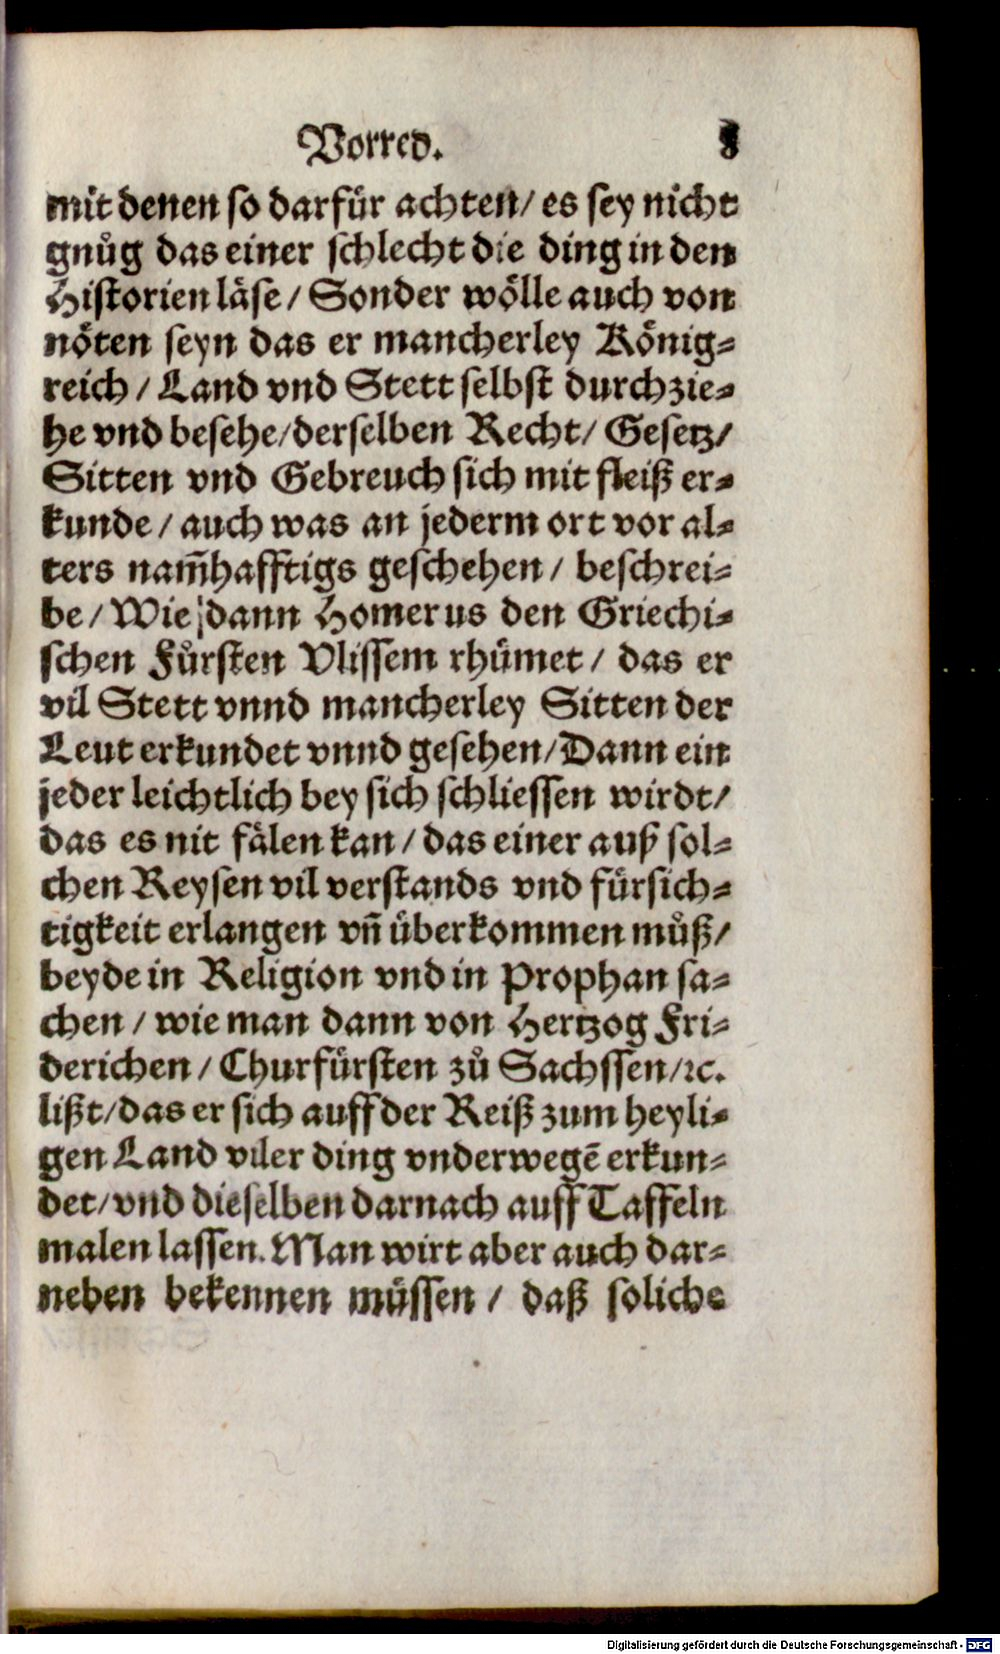 Vorred. 8
mit denen so darfür achten/ es sey nicht
gnůg das einer schlecht die ding in den
Historien läse/ Sonder wölle auch von
nöten seyn das er mancherley König⸗
reich/ Land vnd Stett selbst durchzie⸗
he vnd besehe/derselben Recht/ Gesetz/
Sitten vnd Gebreuch sich mit fleiß er⸗
kunde/ auch was an jederm ort vor al⸗
ters nam̃hafftigs geschehen/ beschrei⸗
be/ Wie dann Homerus den Griechi⸗
schen Fürsten Vlissem rhümet/ das er
vil Stett vnnd mancherley Sitten der
Leut erkundet vnnd gesehen/Dann ein
jeder leichtlich bey sich schliessen wirdt/
das es nit fälen kan/ das einer auß sol⸗
chen Reysen vil verstands vnd fürsich⸗
tigkeit erlangen vñ überkommen můß/
beyde in Religion vnd in Prophan sa⸗
chen/ wie man dann von Hertzog Fri⸗
derichen/ Churfürsten zů Sachssen/ꝛc.
lißt/das er sich auff der Reiß zum heyli⸗
gen Land viler ding vnderwegẽ erkun⸗
det/vnd dieselben darnach auff Taffeln
malen lassen. Man wirt aber auch dar⸗
neben bekennen müssen/ daß soliche
Digitalisierung gefördert durch die Deutsche Forschungsgemeinschaft - DFG